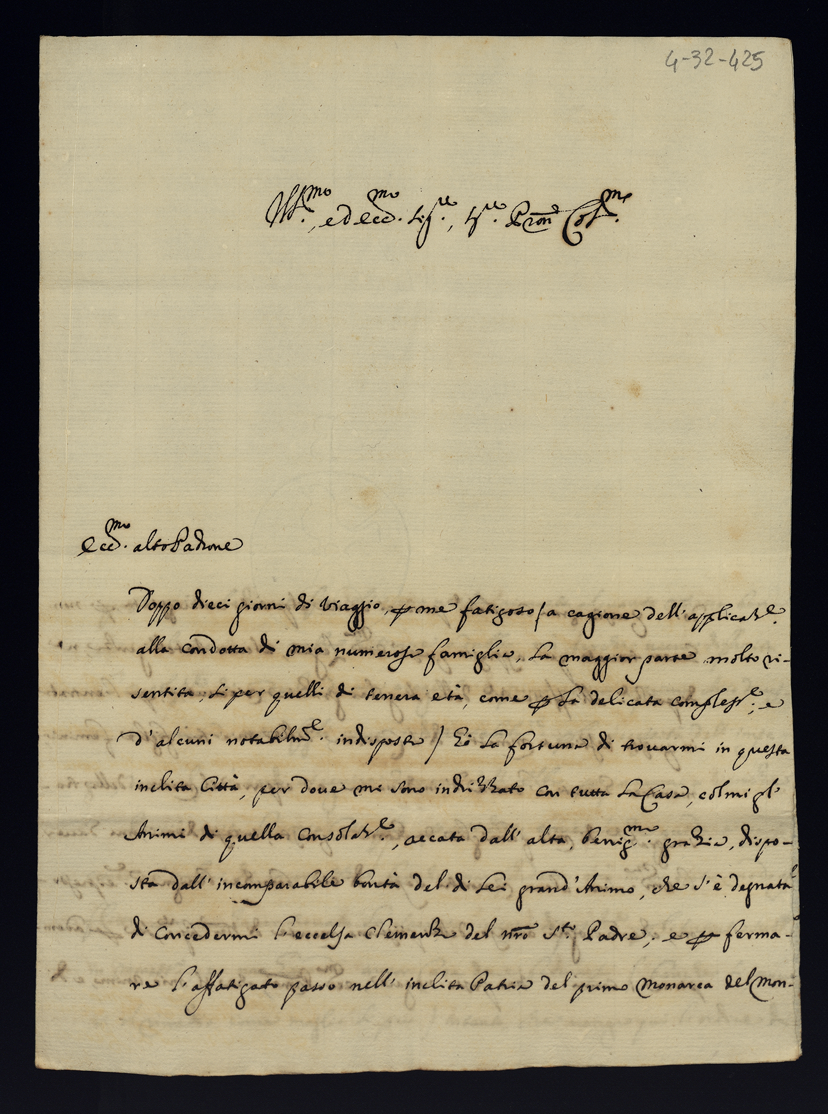 4-32-425
Ill.mo, ed ecc.mo Sig.re, Sig.re Pron Col.mo
Ecc.mo alto Padrone
Doppo dieci giorni di viaggio, p me fatigoso / a cagione dell'applicaz.e
alla condotta di mia numerosa famiglia, la maggior parte molto ri-
sentita, sì per quelli di tenera età, come p la delicata compless.e; e
d'alcuni notabilm.e indisposta / Hò la fortuna di trovarmi in questa
inclita Città, per dove mi sono indrizzato con tutta la Casa, colmi gl'
Animi di quella consolaz.e, recata dall'alta, benig.ma grazia, dispo-
sta dall'incomparabile bontà del di Lei grand'Animo, che s'è degnata
di concedermi l'eccelsa Clemenza del nro S.to Padre; e p ferma-
re l'affatigato passo nell'inclita Patria del primo Monarca del Mon-